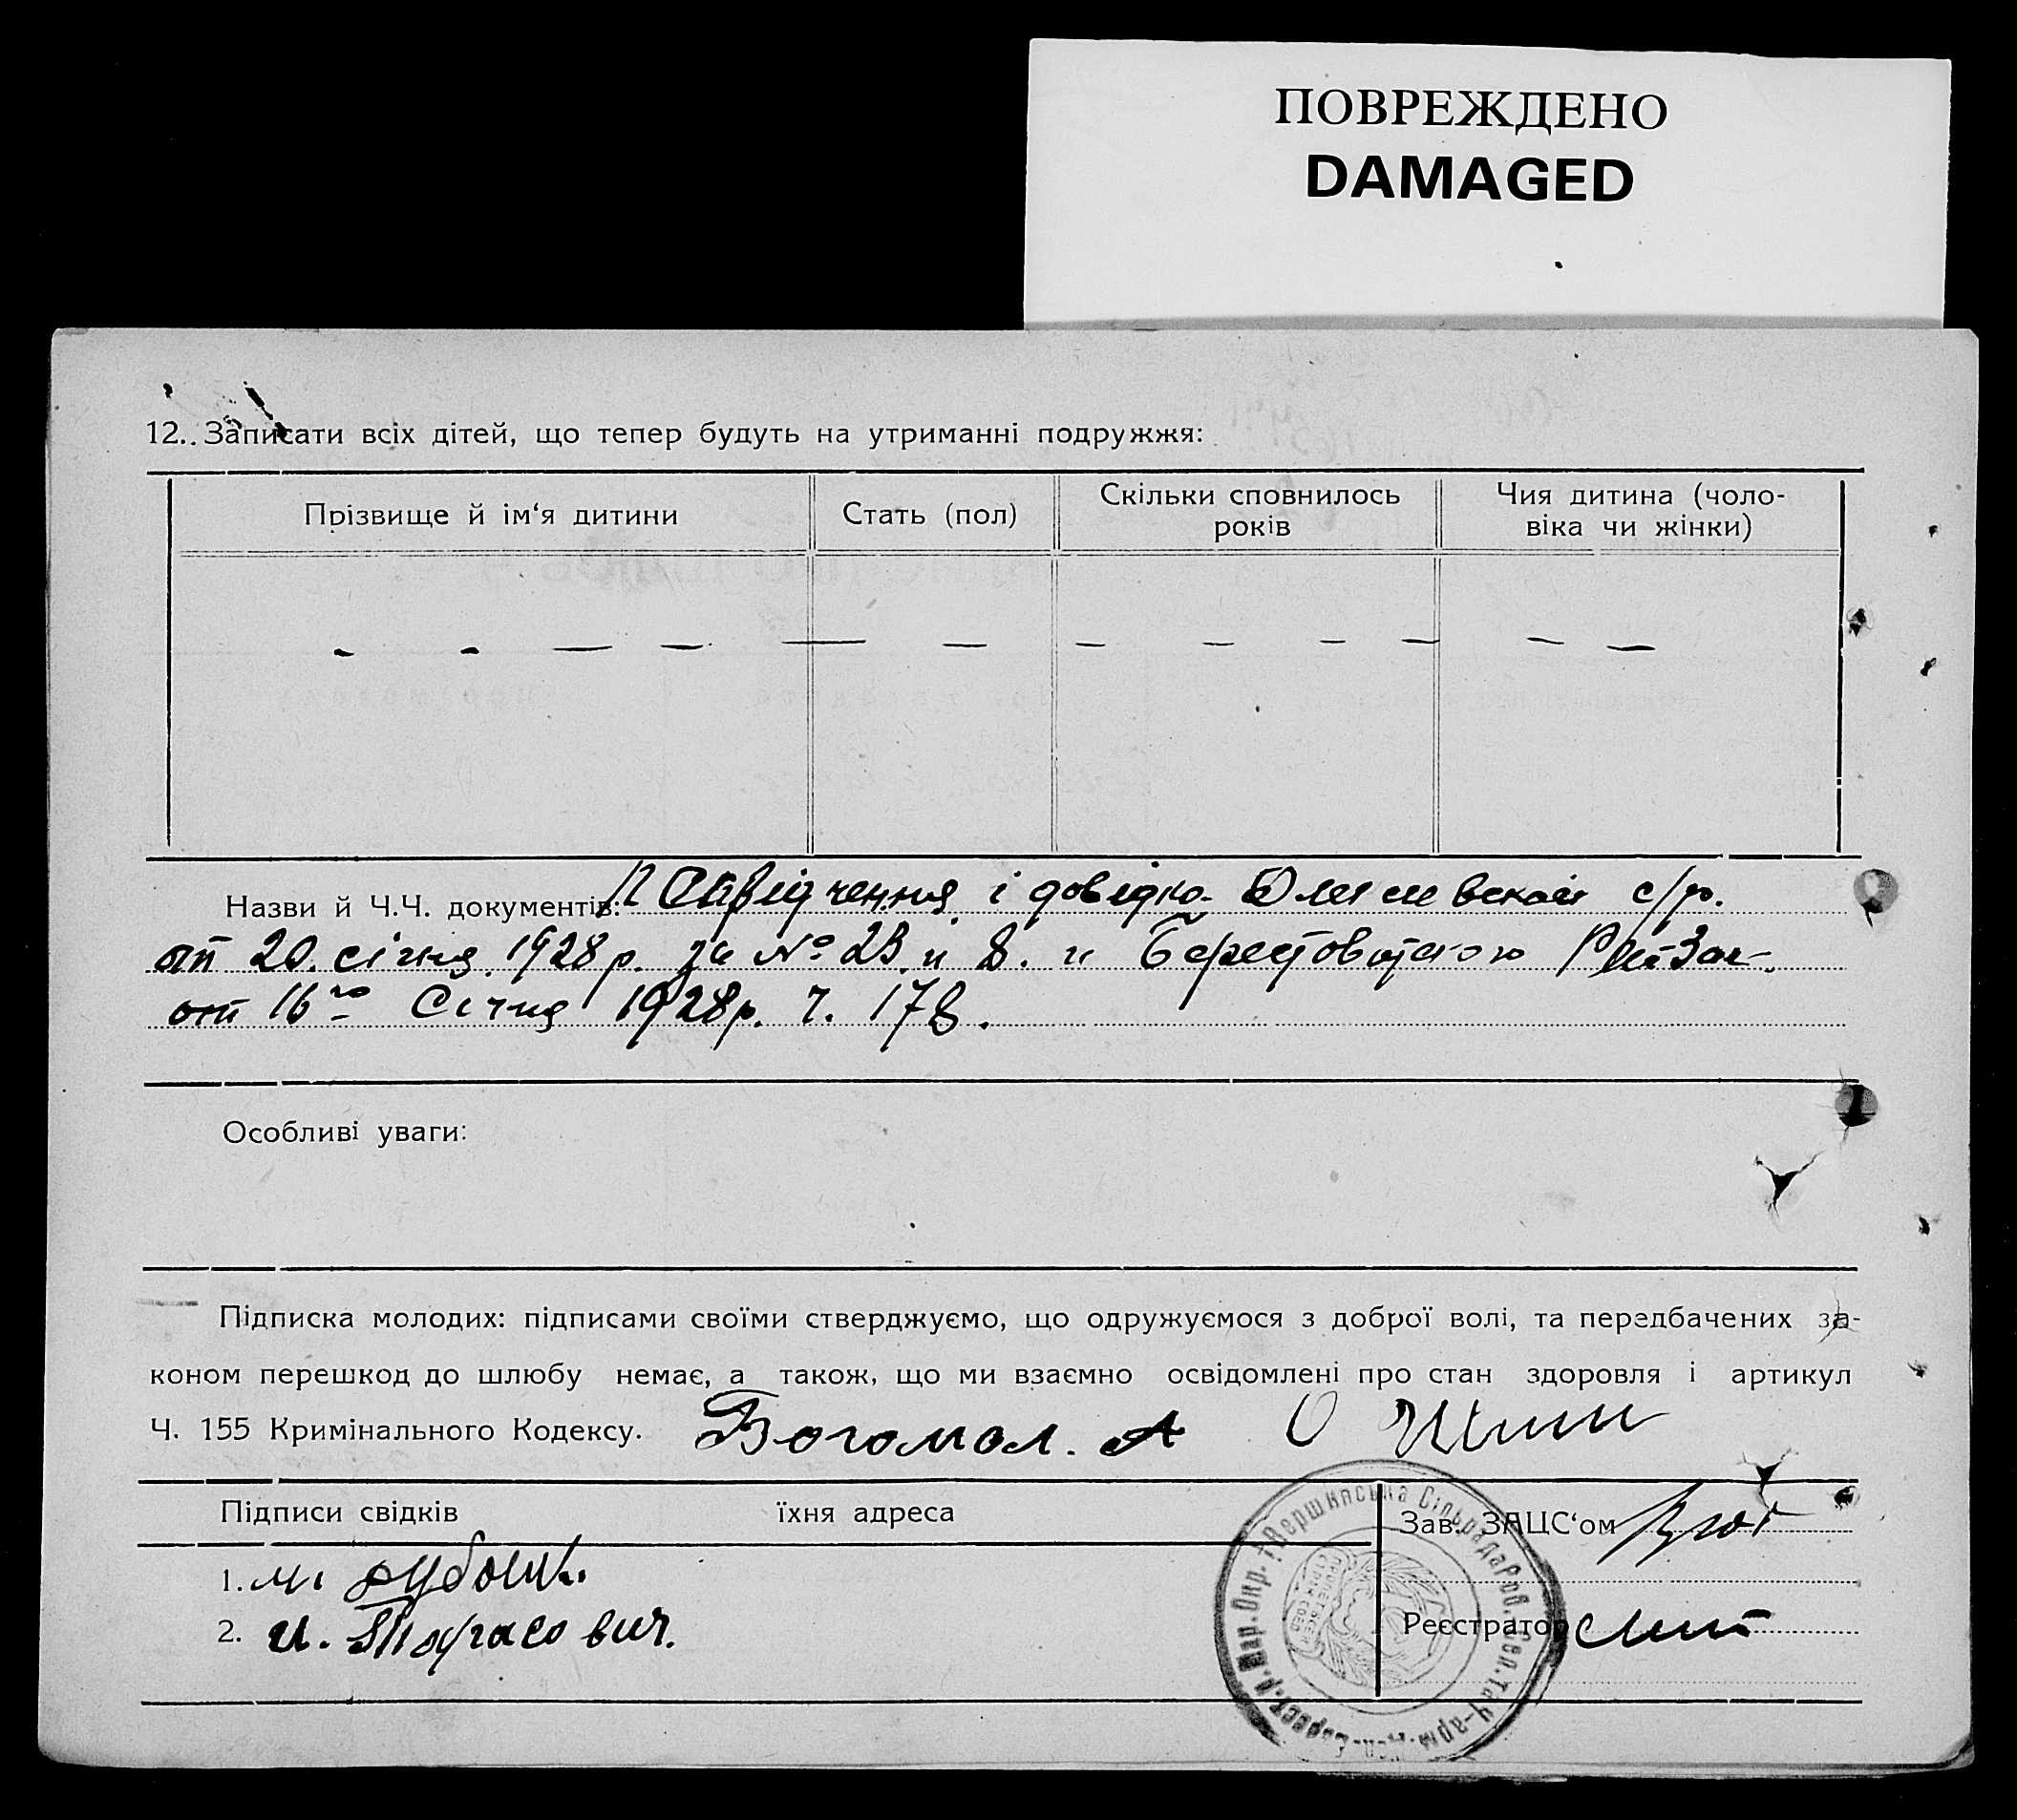 ПОВРЕЖДЕНО
DAMAGED
12. Записати всіх дітей, що тепер будуть на утриманні подружжя:
Прізвище й ім‘я дитини
Стать (пол)
Скільки сповнилось
років
Чия дитина (чоло-
віка чи жінки)
Назви й Ч.Ч. документів: і довідка с/р.
от 20. січня 1928 р. за № 23 и 8. и
от 16го Січня 1928 р. ч. 178.
Особливі уваги:
Підписка молодих: підписами своїми стверджуємо, що одружуємося з доброї волі, та передбачених за-
коном перешкод до шлюбу немає, а також, що ми взаємно освідомлені про стан здоровля і артикул
Ч. 155 Кримінального Кодексу. Богомол. А
Підписи свідків
їхня адреса
Зав. ЗАЦС‘ом
1.
2. И. Тарасович.
Реєстратор